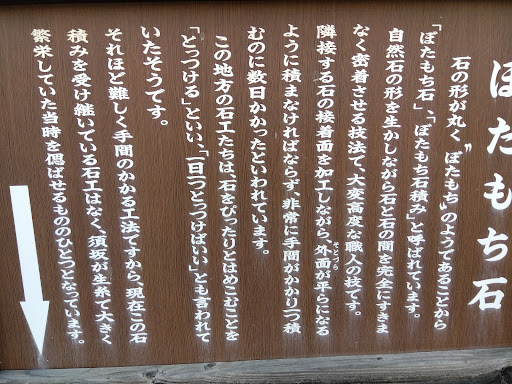 ぼたもち石
石の形が丸く〝ぼたもち〟のようであることから
「ぼたもち石」、「ぼたもち石積み」と呼ばれています。
自然石の形を生かしながら石と石の間を完全にすきま
なく密着させる技法で、大変高度な職人の技です。
隣接する石の接着面を加工しながら、外面が平らになる
そとづら
ように積まなければならず、非常に手間がかかり一つ積
むのに数日かかったといわれています。
この地方の石工たちは、石をぴったりとはめこむことを
「とっつける」といい、「一日一つとっつけばいい」とも言われて
いたそうです。
それほど難しく手間のかかる工法ですから、現在この石
積みを受け継いでいる石工はなく、須坂が生糸で大きく
繁栄していた当時を偲ばせるもののひとつとなっています。